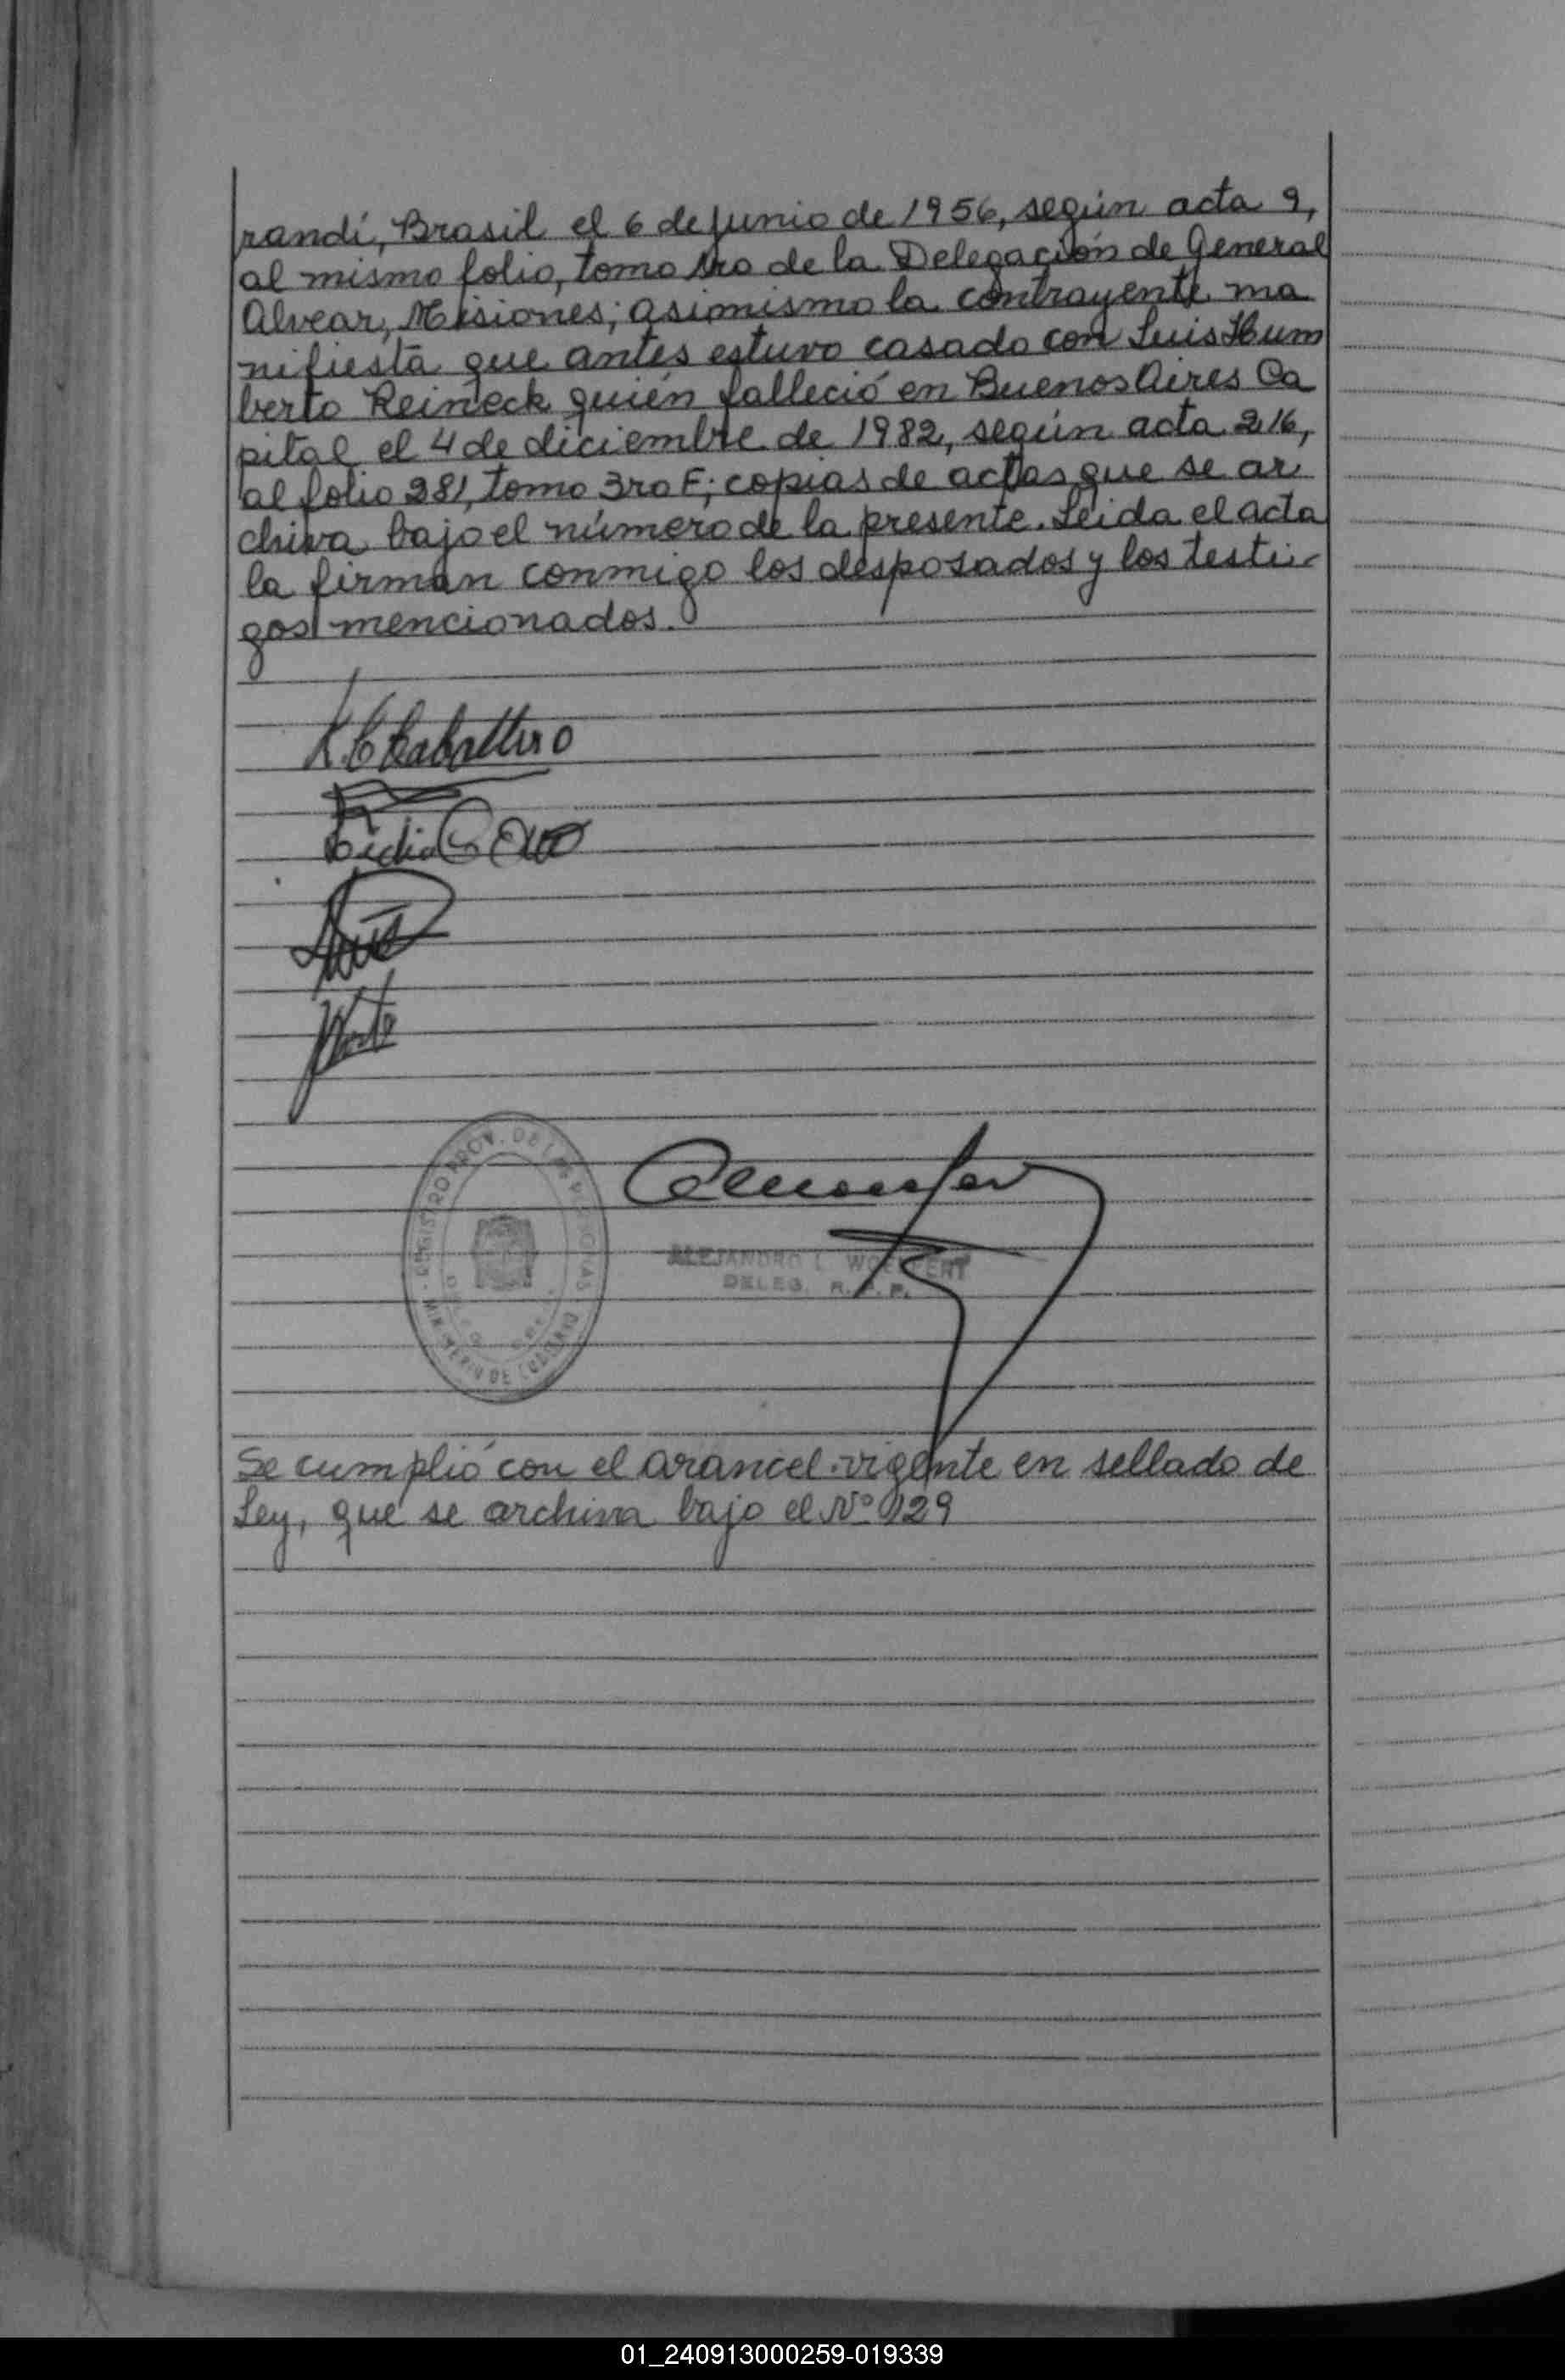 randí, Brasil el 6 de junio de 1956, según acta 9,
al mismo folio, tomo 1ro de la Delegación de General
Alvear, Misiones; asimismo la contrayente ma
nifiesta que antes estuvo casado con Luis Hum
berto Reineck quién falleció en Buenos Aires Ca
pital el 4 de diciembre de 1982, según acta 216,
al folio 281, tomo 3ro F; copias de actas que se ar
chiva bajo el número de la presente. Leida el acta
la firman conmigo los desposados y los testi-
gos mencionados.
Caballero
Lidia
REGISTRO PROV. DE LAS PERSONAS
MINISTERIO DE GOBIERNO
ALEJANDRO L. WOELFERT
DELEG. R. P. P.
Se cumplió con el arancel vigente en sellado de
Ley, que se archiva bajo el Nº 129
01_240913000259-019339